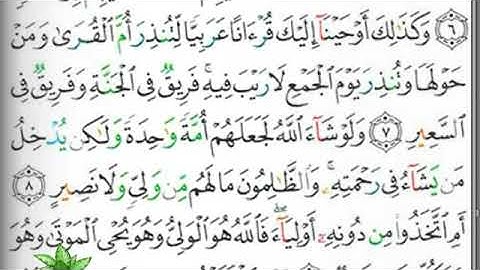 ٦ وَكَذَٰلِكَ أَوْحَيْنَآ إِلَيْكَ قُرْءَانًا عَرَبِيًّا لِّتُنذِرَ أُمَّ ٱلْقُرَىٰ وَمَنْ
حَوْلَهَا وَتُنذِرَ يَوْمَ ٱلْجَمْعِ لَا رَيْبَ فِيهِ ۚ فَرِيقٌ فِى ٱلْجَنَّةِ وَفَرِيقٌ فِى
ٱلسَّعِيرِ ٧ وَلَوْ شَآءَ ٱللَّهُ لَجَعَلَهُمْ أُمَّةً وَٰحِدَةً وَلَٰكِن يُدْخِلُ
مَن يَشَآءُ فِى رَحْمَتِهِۦ ۚ وَٱلظَّٰلِمُونَ مَا لَهُم مِّن وَلِىٍّ وَلَا نَصِيرٍ ٨
أَمِ ٱتَّخَذُوا۟ مِن دُونِهِۦٓ أَوْلِيَآءَ ۖ فَٱللَّهُ هُوَ ٱلْوَلِىُّ وَهُوَ يُحْىِ ٱلْمَوْتَىٰ وَهُوَ